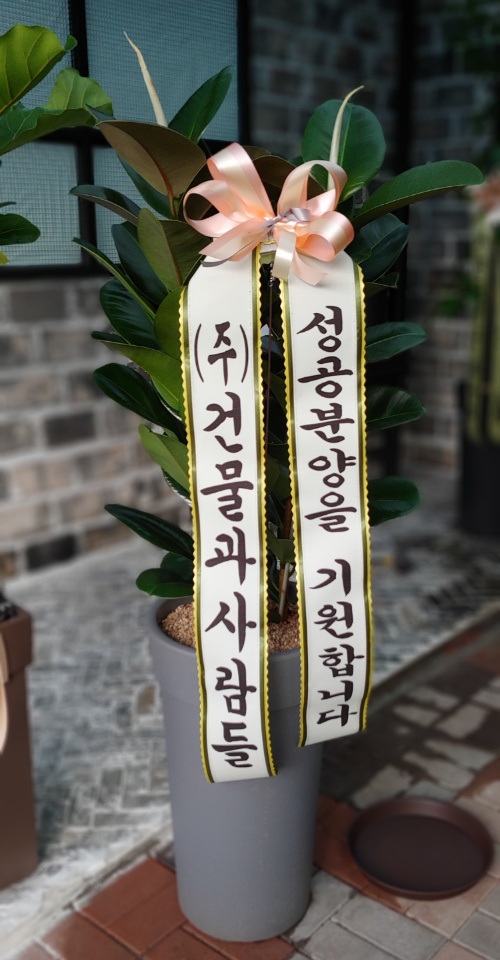 성공분양을 기원합니다
(주)건물과사람들